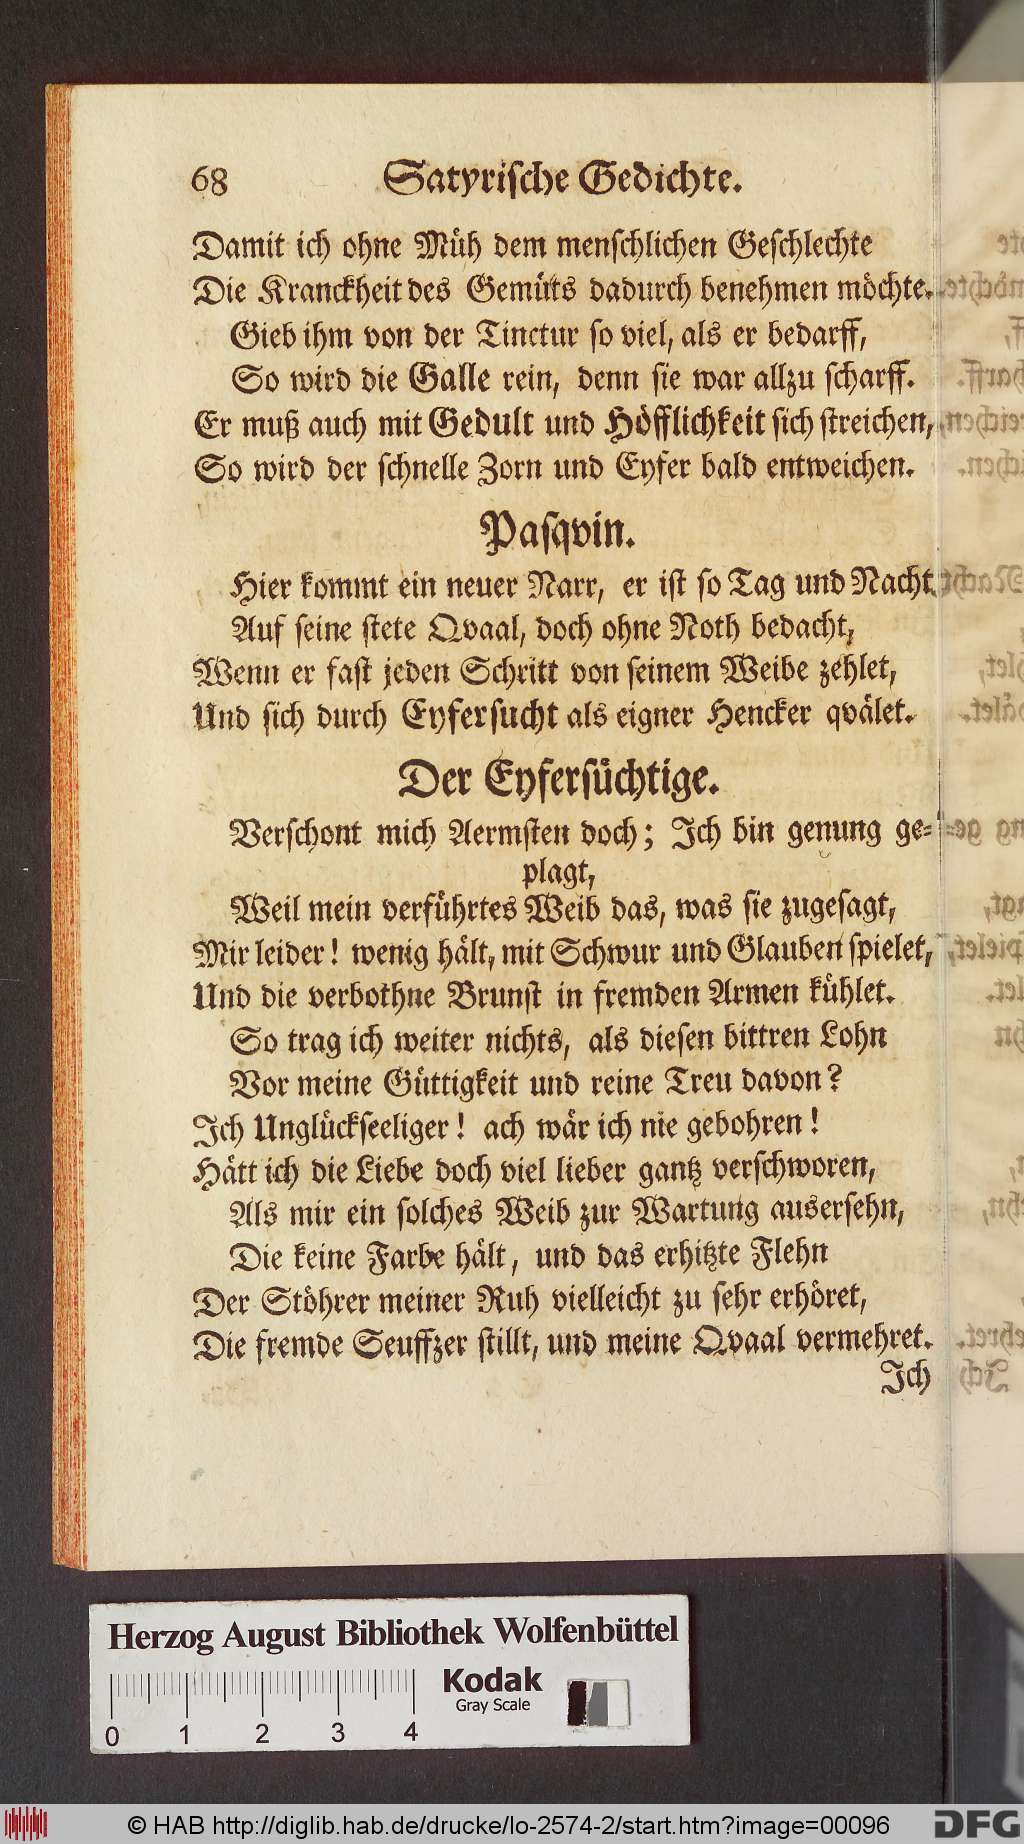 68 Satyrische Gedichte.
Damit ich ohne Müh dem menschlichen Geschlechte
Die Kranckheit des Gemüts dadurch benehmen möchte.
Gieb ihm von der Tinctur so viel, als er bedarff,
So wird die Galle rein, denn sie war allzu scharff.
Er muß auch mit Gedult und Höfflichkeit sich streichen,
So wird der schnelle Zorn und Eyfer bald entweichen.
Pasqvin.
Hier kommt ein neuer Narr, er ist so Tag und Nacht
Auf seine stete Qvaal, doch ohne Noth bedacht,
Wenn er fast jeden Schritt von seinem Weibe zehlet,
Und sich durch Eyfersucht als eigner Hencker qvälet.
Der Eyfersüchtige.
Verschont mich Aermsten doch; Ich bin genung ge-
plagt,
Weil mein verführtes Weib das, was sie zugesagt,
Mir leider! wenig hält, mit Schwur und Glauben spielet,
Und die verbothne Brunst in fremden Armen kühlet.
So trag ich weiter nichts, als diesen bittren Lohn
Vor meine Güttigkeit und reine Treu davon?
Ich Unglückseeliger! ach wär ich nie gebohren!
Hätt ich die Liebe doch viel lieber gantz verschworen,
Als mir ein solches Weib zur Wartung ausersehn,
Die keine Farbe hält, und das erhitzte Flehn
Der Stöhrer meiner Ruh vielleicht zu sehr erhöret,
Die fremde Seuffzer stillt, und meine Qvaal vermehret.
Ich
Herzog August Bibliothek Wolfenbüttel
Kodak
Gray Scale
0 1 2 3 4
© HAB http://diglib.hab.de/drucke/lo-2574-2/start.htm?image=00096
DFG